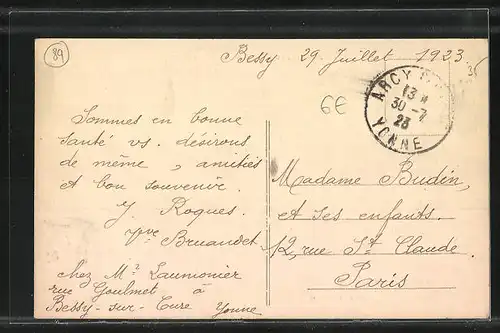 89
Bessy 29 Juillet 1923
36
6E
ARCY
13
30-7
23
YONNE
Sommes en bonne
santé vs. désirons
de même, amitiés
et bon souvenir.
J. Roques.
Vve Bruandet
chez Mr Laumonier
rue Goulmet à
Bessy-sur-Cure Yonne
Madame Budin,
et ses enfants.
12, rue St Claude.
Paris